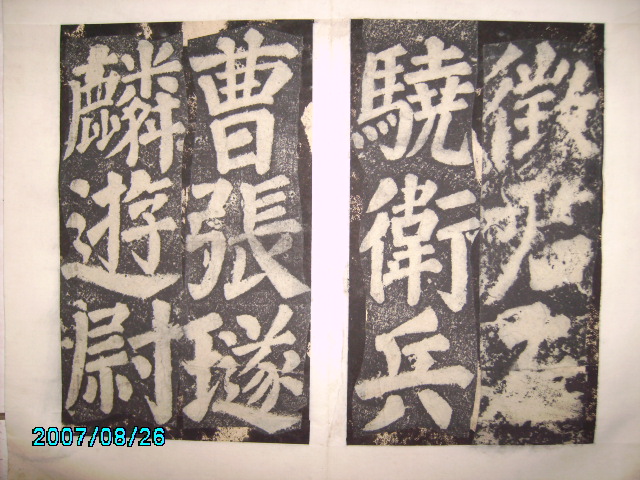 徵左
驍衛兵
曹張璲
麟遊尉
2007/08/26